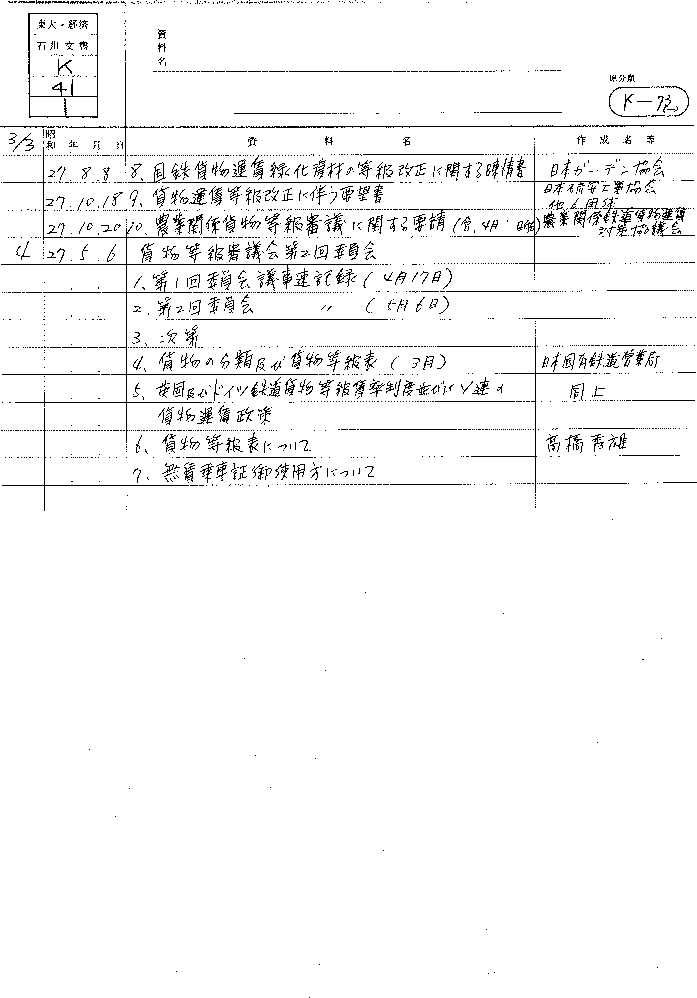 東大・経済
石川文書
K
41
1
資料名
原分類
K-73
3/3
昭和 年 月 日 資 料 名 作 成 者 等
27. 8. 8 8、国鉄貨物運賃緑化資材の等級改正に関する陳情書 日本ガーデン協会
27. 10. 18 9、貨物運賃等級改正に伴う要望書 日本硫安工業協会
他6団体
27. 10. 20 10、農業関係貨物等級審議に関する要請 農業関係鉄道貨物運賃
対策協議会
4 27. 5. 6 貨物等級審議会第2回委員会
1、第1回委員会議事速記録(4月17日)
2、第2回委員会 〃 (5月6日)
3、次第
4、貨物の分類及び貨物等級表(3月) 日本国有鉄道営業局
5、英国及びドイツ鉄道貨物等級賃率制度並びにソ連の 同上
貨物運賃政策
6、貨物等級表について 高橋秀雄
7、無賃乗車証御使用方について